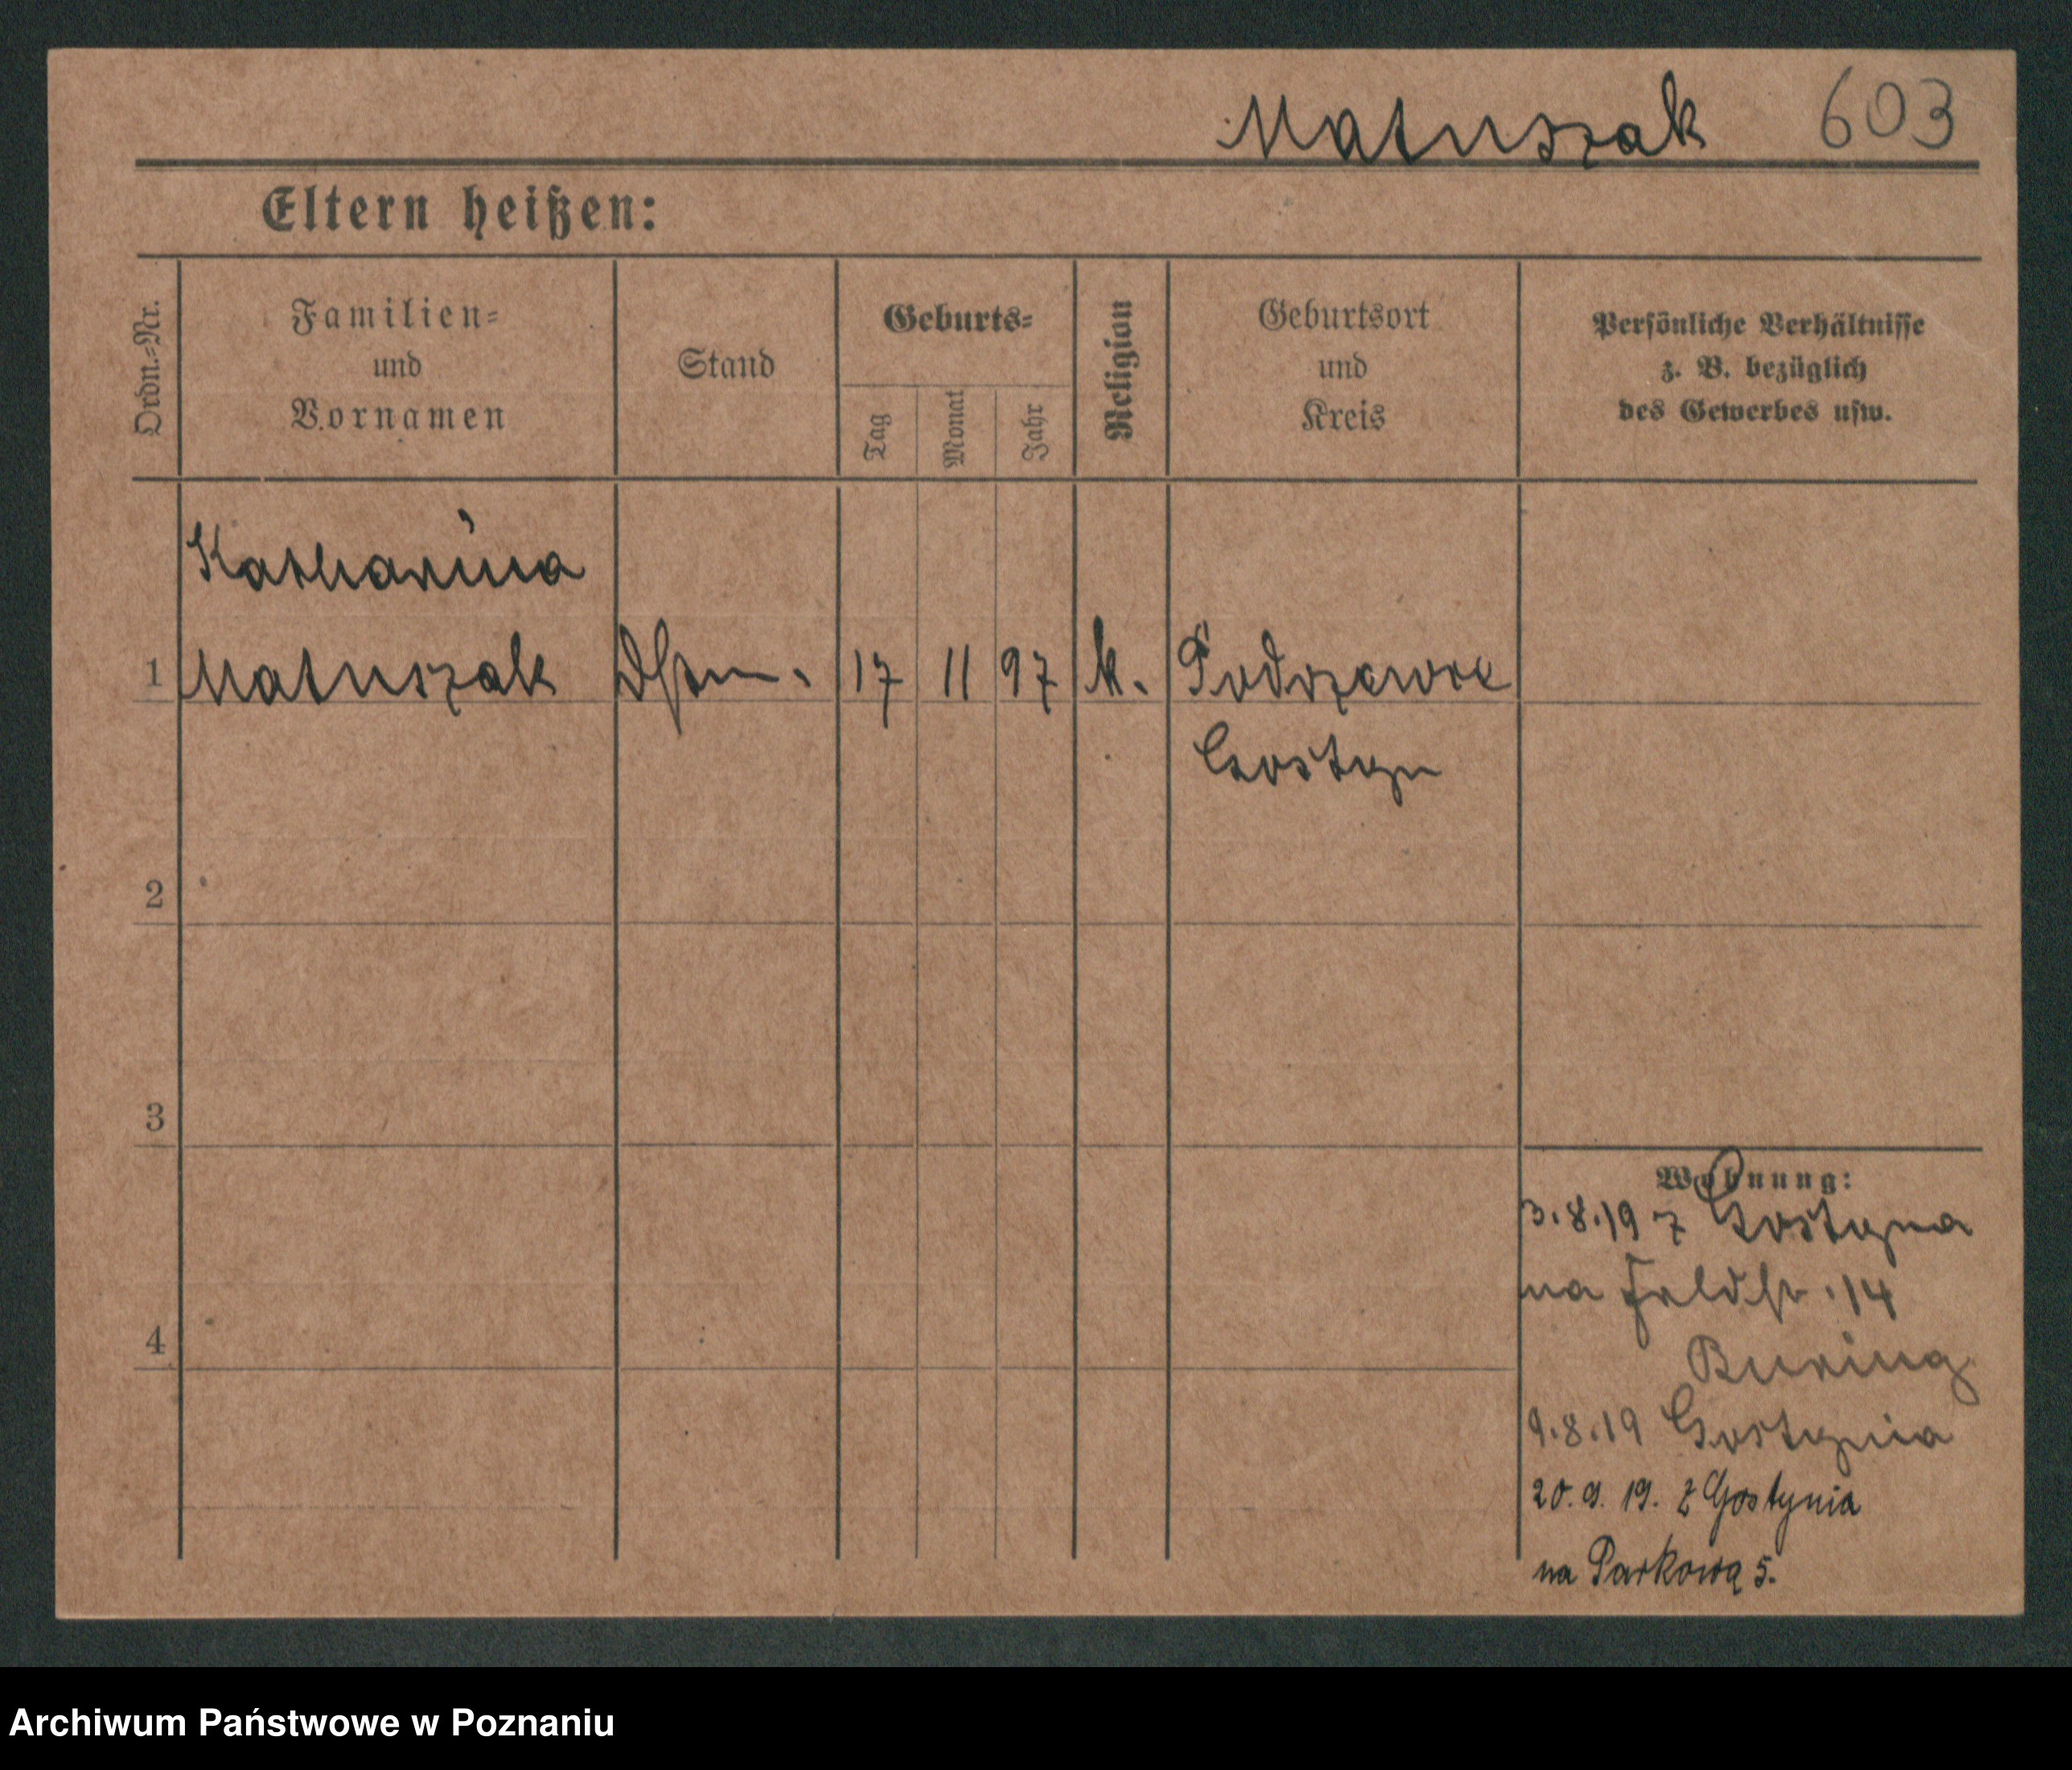 Matuszak 603
Eltern heißen:
Ordn.=Nr.
Familien=
und
Vornamen
Stand
Geburts=
Tag
Monat
Jahr
Religion
Geburtsort
und
Kreis
Persönliche Verhältnisse
z. B. bezüglich
des Gewerbes usw.
Katharina
1 Matuszak 17 11 97 k.
Gostyn
2
3
4
Wohnung:
3.8.19 z Gostyna
na Feldstr. 14
9.8.19 Gostynia
20. 9. 19. z Gostynia
na Parkową 5.
Archiwum Państwowe w Poznaniu